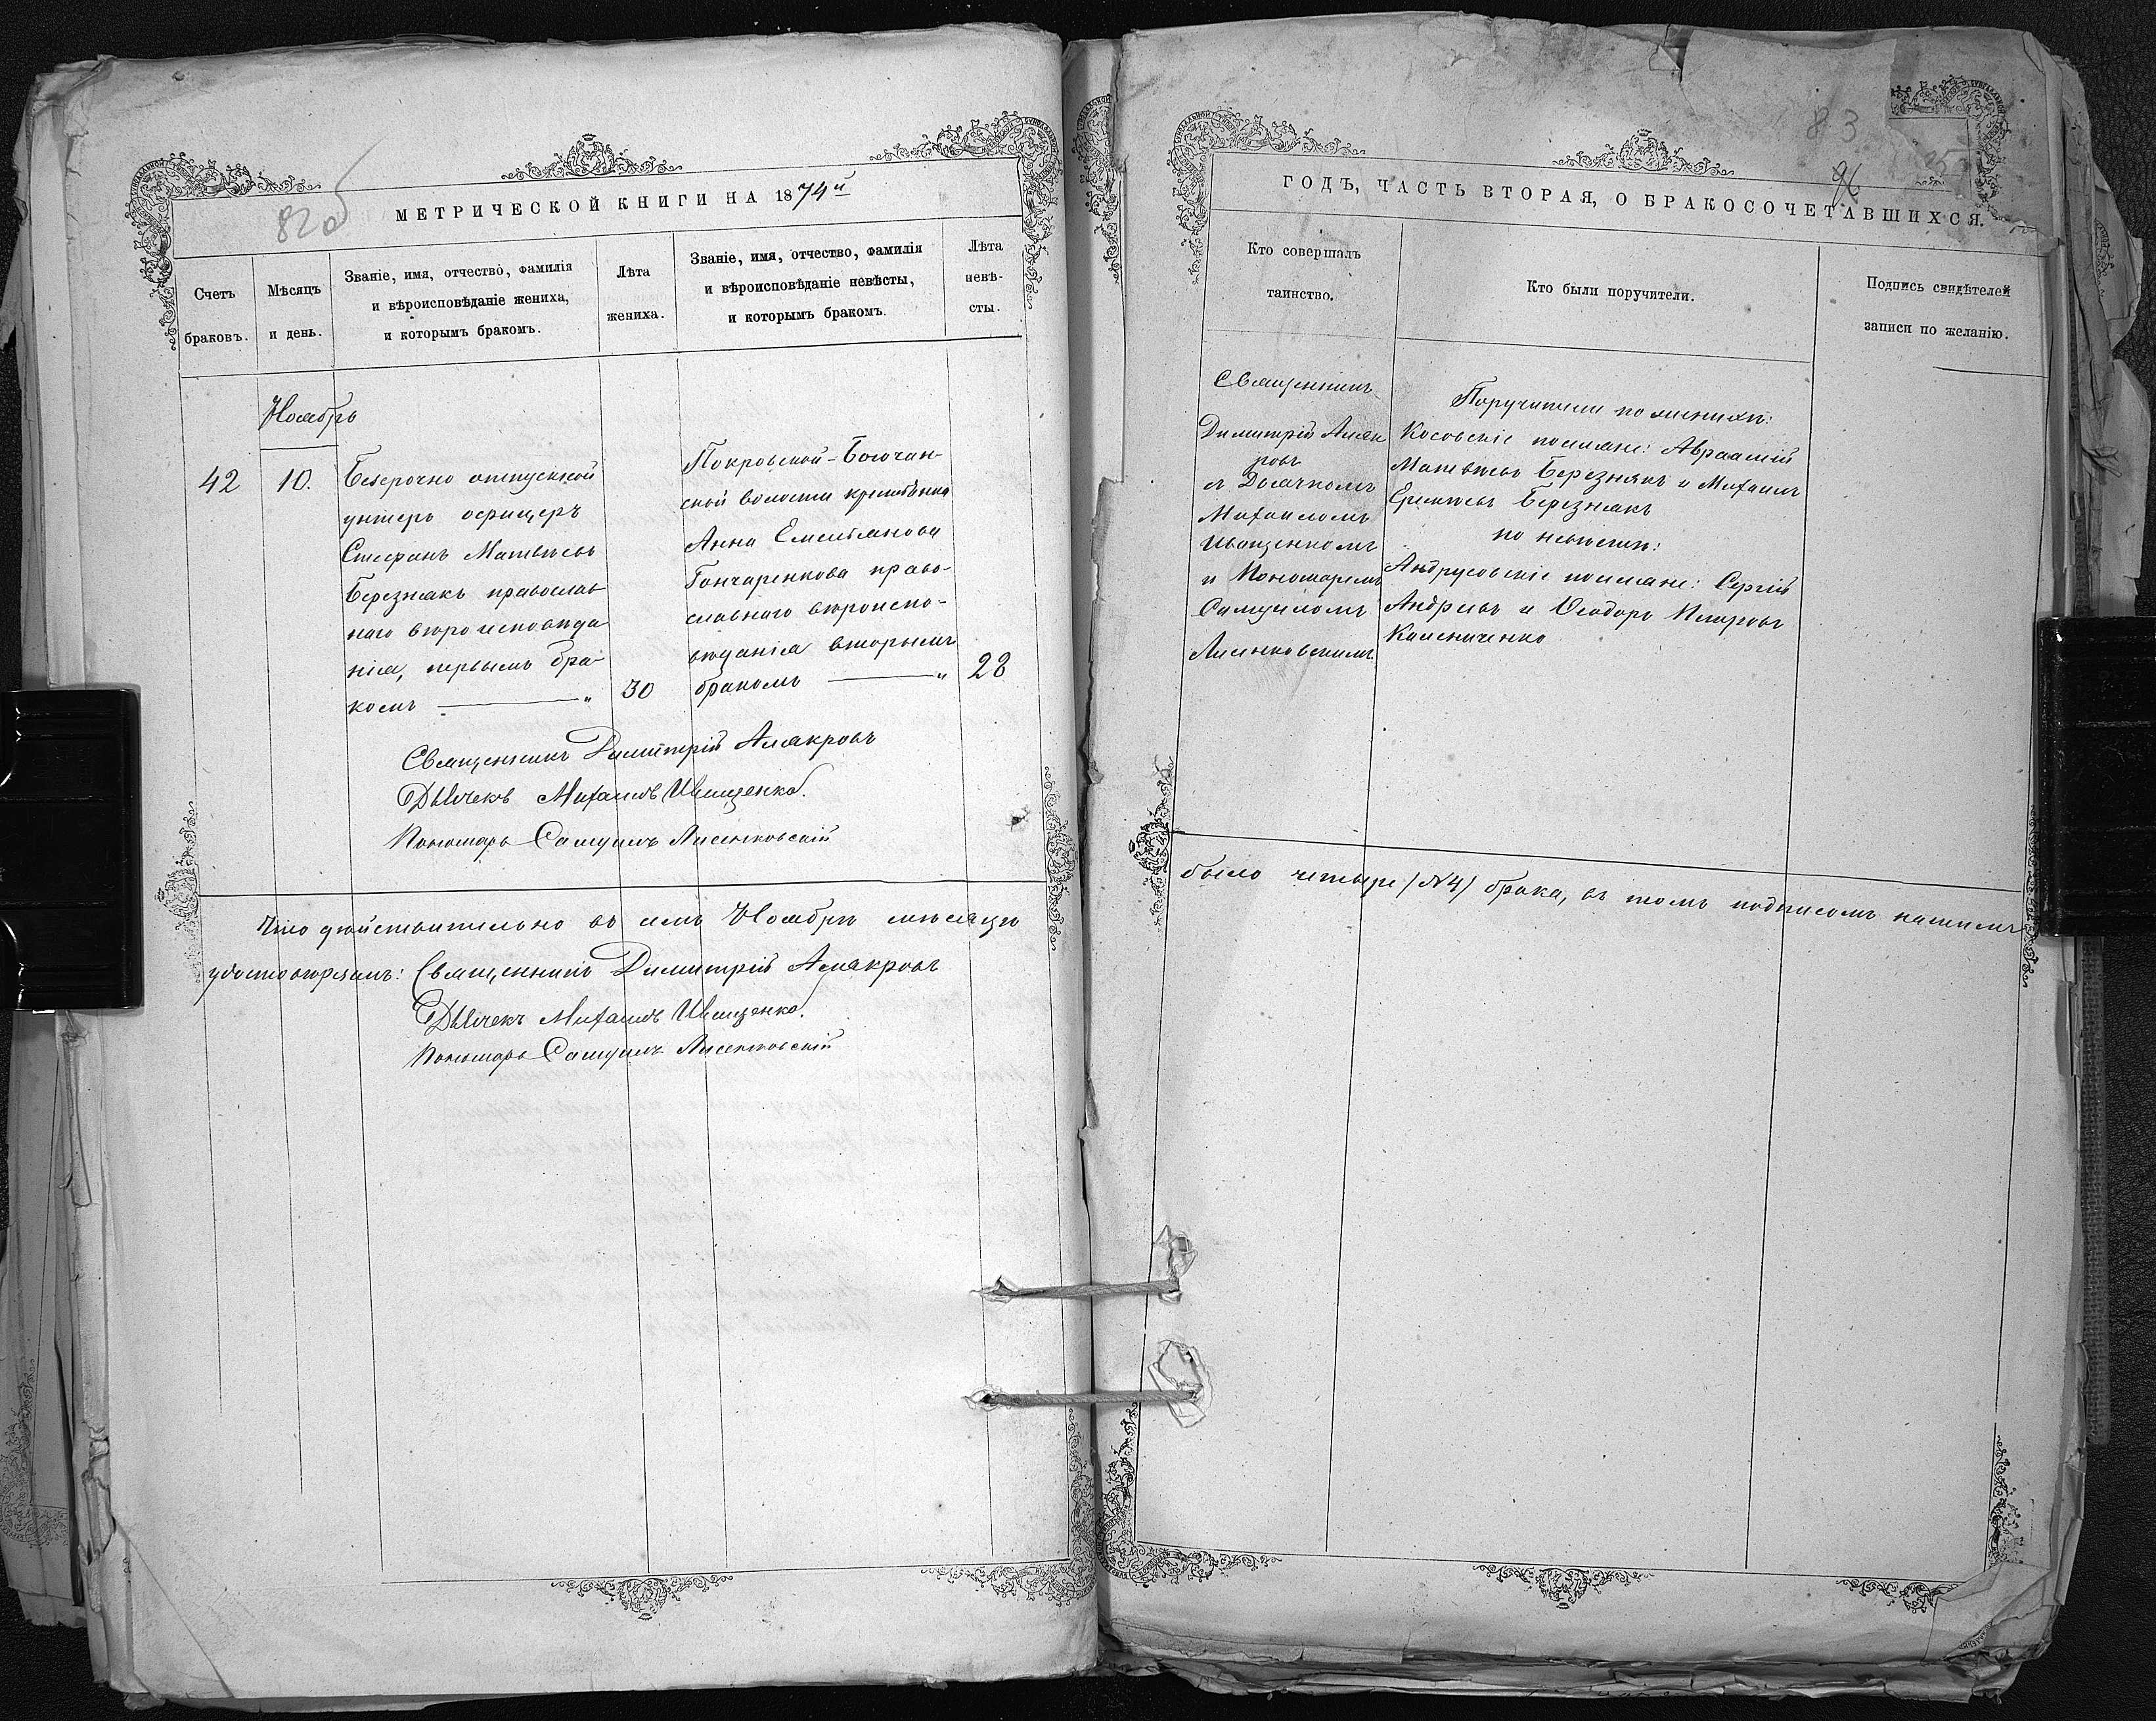 82об
МЕТРИЧЕСКОЙ КНИГИ НА 1874й
Счетъ
браковъ.
Мѣсяцъ
и день.
Званіе, имя, отчество, фамилія
и вѣроисповѣданіе жениха,
и которымъ бракомъ.
Лѣта
жениха.
Званіе, имя, отчество, фамилія
и вѣроисповѣданіе невѣсты,
и которымъ бракомъ.
Лѣта
невѣ-
сты.
Ноябрь
42
10.
Безсрочно отпускной
унтеръ офицеръ
Стефанъ Матвѣевъ
Березнякъ православ
наго вѣроисповѣда
нія, первымъ бра-
комъ — „
30
Покровской-Богочан-
ской волости крестьянка
Анна Емельянова
Гончаренкова право-
славнаго вѣроиспо-
вѣданія вторымъ
бракомъ — „
28
Священникъ Димитрій Амакровъ
Дьячекъ Михаилъ Иващенко.
Пономарь Самуилъ Лисенковскій
Что дѣйствительно въ семъ Ноябрѣ мѣсяцѣ
удостовѣряемъ: Священникъ Димитрій Амакровъ
Дьячекъ Михаилъ Иващенко.
Пономарь Самуилъ Лисенковскій
83
96
ГОДЪ, ЧАСТЬ ВТОРАЯ, О БРАКОСОЧЕТАВШИХСЯ.
Кто совершалъ
таинство.
Кто были поручители.
Подпись свидѣтелей
записи по желанію.
Священникъ
Димитрій Амак
ровъ
съ Дьячкомъ
Михаиломъ
Иващенкомъ
и Пономаремъ
Самуиломъ
Лисенковскимъ.
Поручители по женихѣ:
Косовскіе поселяне: Авраамій
Матвѣевъ Березнякъ и Михаилъ
Еремѣевъ Березнякъ
по невѣстѣ:
Андрусовскіе поселяне: Сергій
Андреевъ и Ѳеодоръ Петровъ
Колениченко
было четыре (№4) брака, въ томъ подписомъ нашимъ